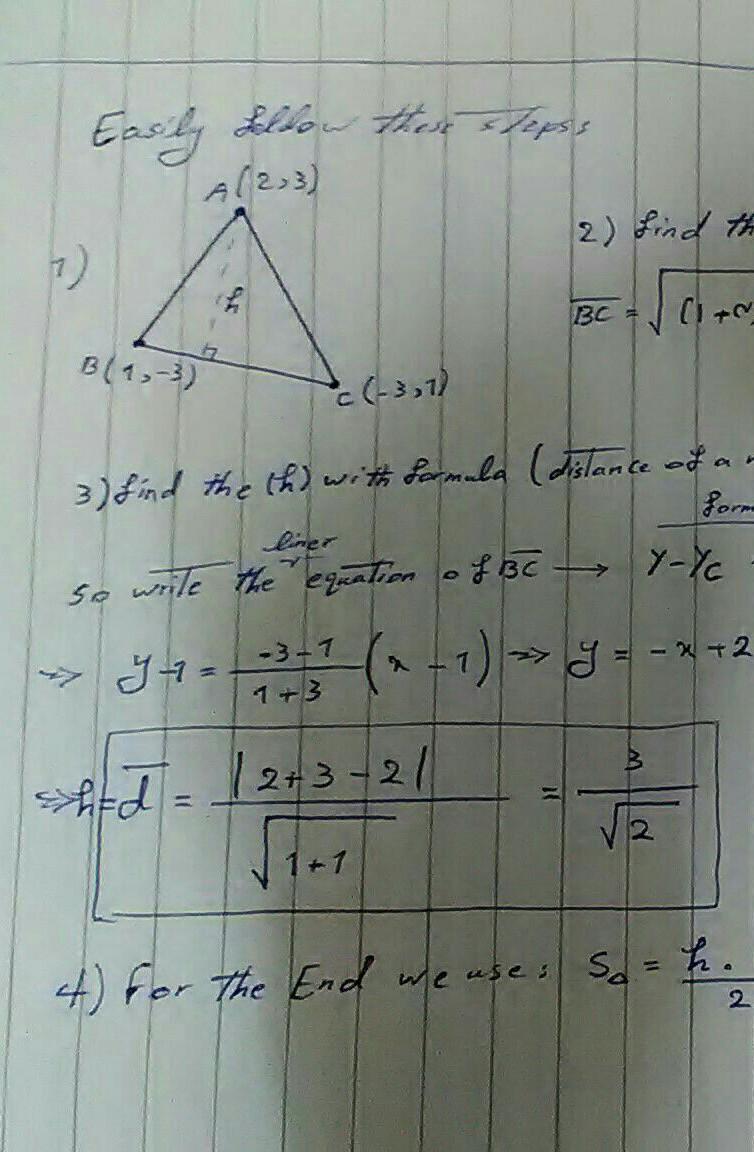 Easily follow these steps:
A(2,3)
1)
h
B(1,-3)
C(-3,1)
2) find th
BC = √(1+
3) find the (h) with formula (distance of a
form
liner
so write the equation of BC → Y-Yc
⇒ y-1 = -3-1/1+3 (x - 1) ⇒ y = -x+2
⇒ h = d = |2+3-2|/√1+1 = 3/√2
4) For the End we use: S△ = h./2